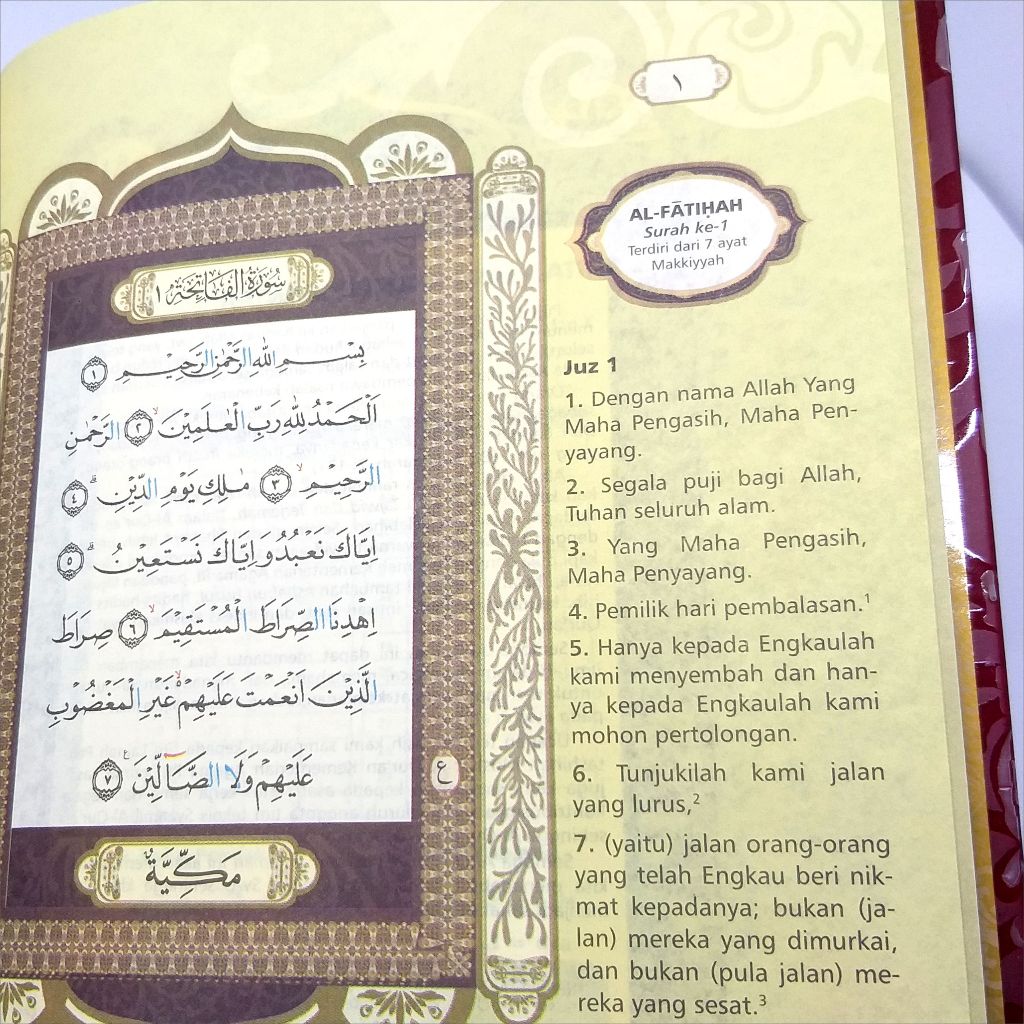 ١
سُورَةُ الْفَاتِحَةِ ١
بِسْمِ اللّٰهِ الرَّحْمٰنِ الرَّحِيْمِ ١
اَلْحَمْدُ لِلّٰهِ رَبِّ الْعٰلَمِيْنَۙ ٢ الرَّحْمٰنِ
الرَّحِيْمِۙ ٣ مٰلِكِ يَوْمِ الدِّيْنِۗ ٤
اِيَّاكَ نَعْبُدُ وَاِيَّاكَ نَسْتَعِيْنُۗ ٥
اِهْدِنَا الصِّرَاطَ الْمُسْتَقِيْمَۙ ٦ صِرَاطَ
الَّذِيْنَ اَنْعَمْتَ عَلَيْهِمْۙ غَيْرِ الْمَغْضُوْبِ
عَلَيْهِمْ وَلَا الضَّاۤلِّيْنَ ࣖ ٧
ع
مَكِّيَّةٌ
AL-FĀTIḤAH
Surah ke-1
Terdiri dari 7 ayat
Makkiyyah
Juz 1
1. Dengan nama Allah Yang
Maha Pengasih, Maha Pen-
yayang.
2. Segala puji bagi Allah,
Tuhan seluruh alam.
3. Yang Maha Pengasih,
Maha Penyayang.
4. Pemilik hari pembalasan.¹
5. Hanya kepada Engkaulah
kami menyembah dan han-
ya kepada Engkaulah kami
mohon pertolongan.
6. Tunjukilah kami jalan
yang lurus,²
7. (yaitu) jalan orang-orang
yang telah Engkau beri nik-
mat kepadanya; bukan (ja-
lan) mereka yang dimurkai,
dan bukan (pula jalan) me-
reka yang sesat.³